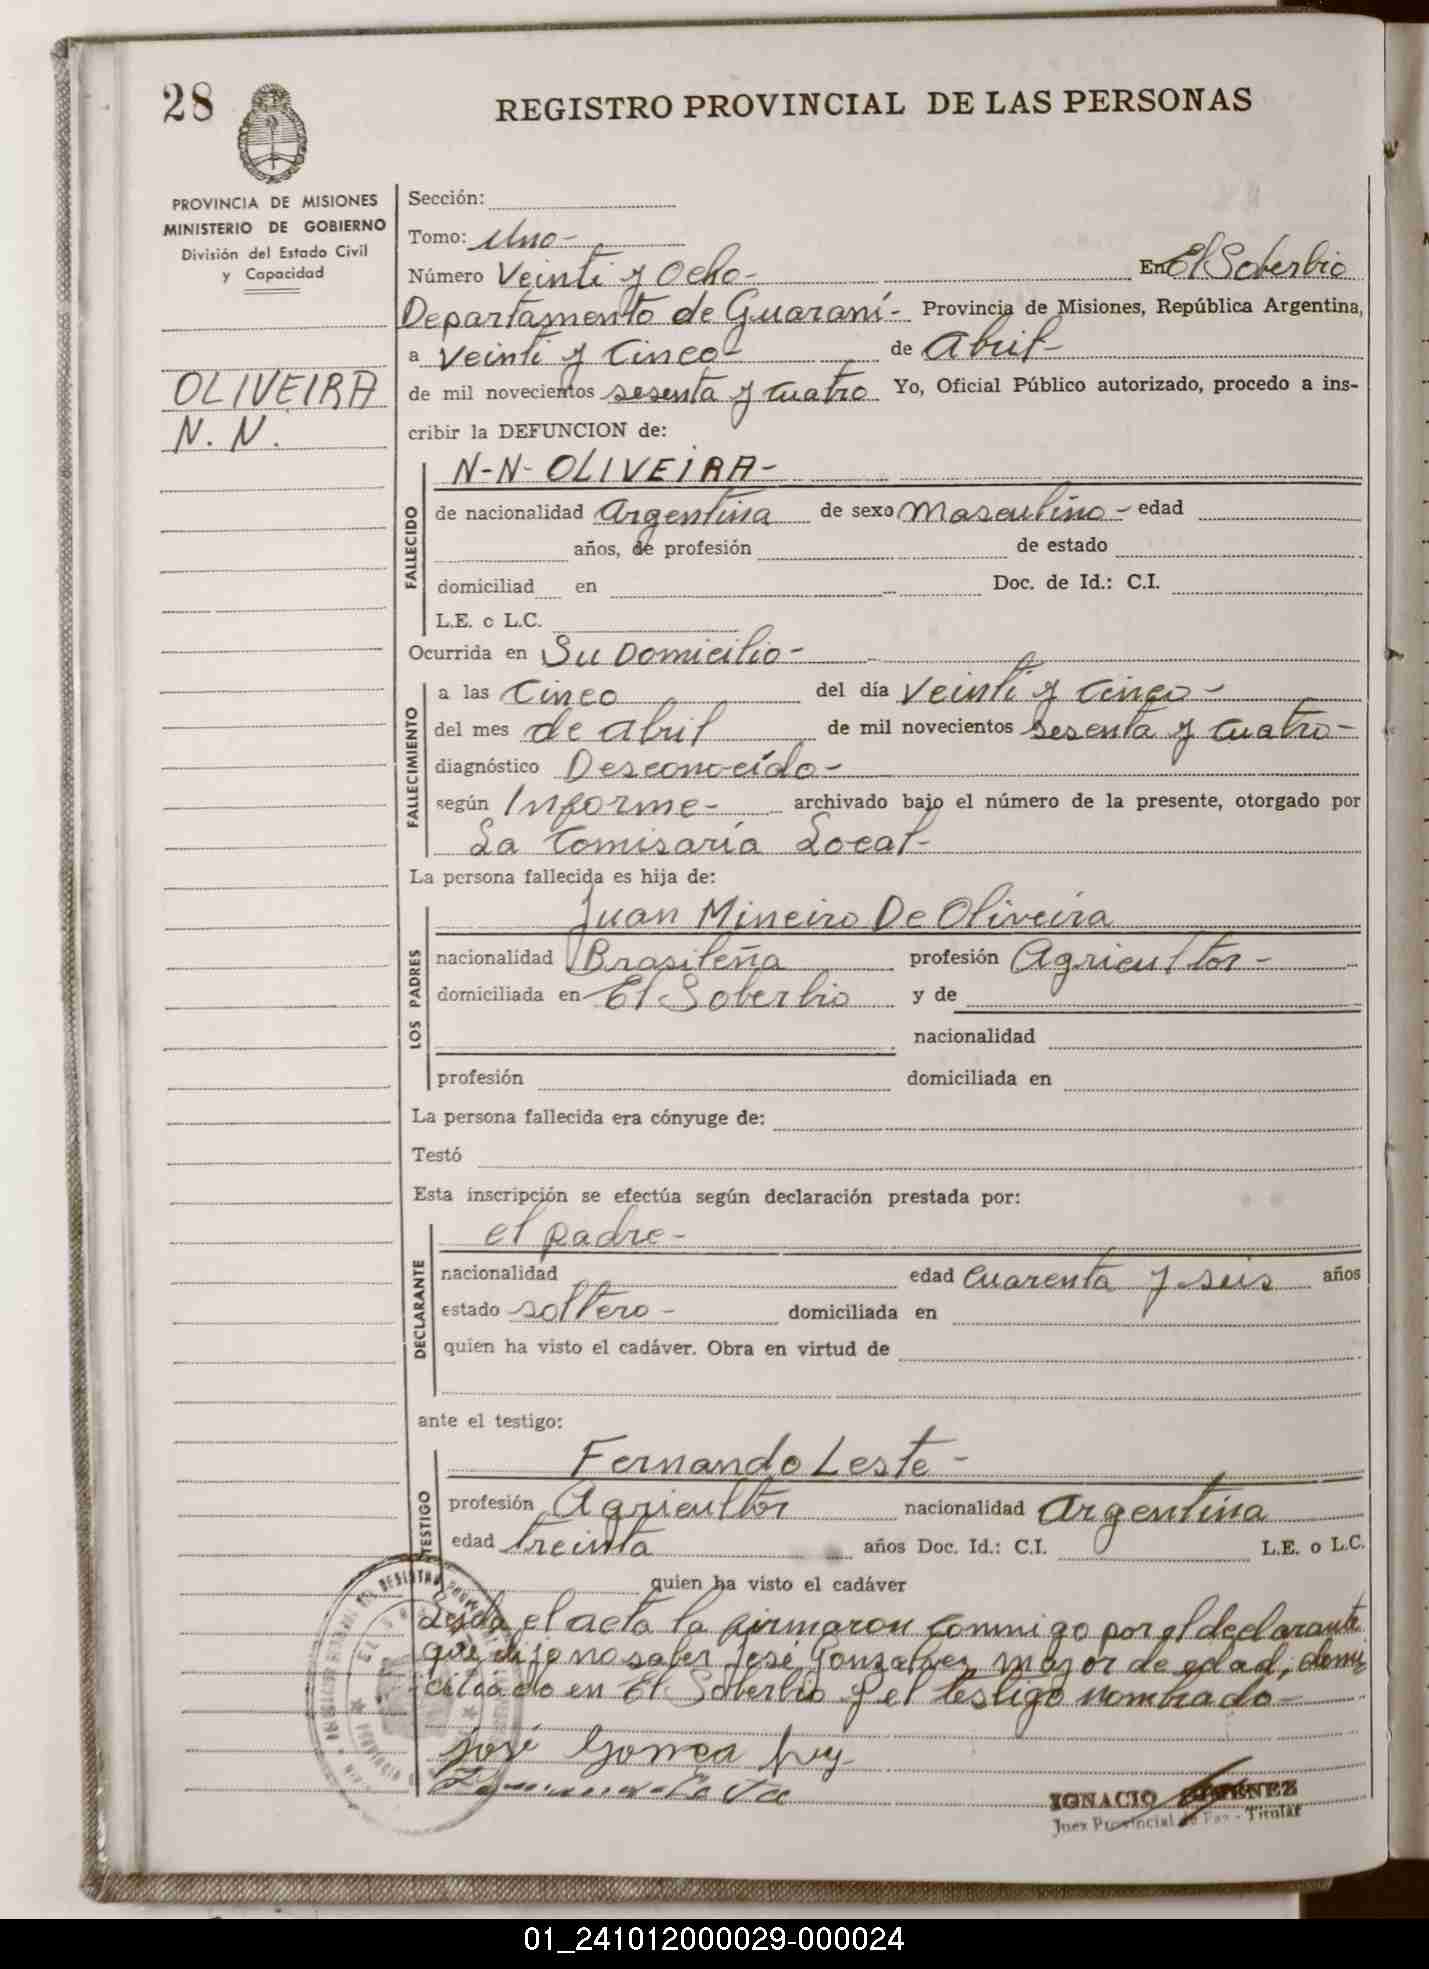 28
REGISTRO PROVINCIAL DE LAS PERSONAS
PROVINCIA DE MISIONES
MINISTERIO DE GOBIERNO
División del Estado Civil
y Capacidad
OLIVEIRA
N. N.
Sección:
Tomo: Uno-
Número Veinti y Ocho- En El Soberbio
Departamento de Guaraní- Provincia de Misiones, República Argentina,
a Veinti y Cinco- de Abril-
de mil novecientos sesenta y cuatro Yo, Oficial Público autorizado, procedo a ins-
cribir la DEFUNCION de:
N-N- OLIVEIRA-
FALLECIDO
de nacionalidad Argentina de sexo Masculino- edad
años, de profesión de estado
domiciliad en Doc. de Id.: C.I.
L.E. o L.C.
Ocurrida en Su Domicilio-
FALLECIMIENTO
a las Cinco del día Veinti y Cinco-
del mes de abril de mil novecientos sesenta y cuatro-
diagnóstico Desconocido-
según Informe- archivado bajo el número de la presente, otorgado por
La Comisaría Local-
La persona fallecida es hija de:
LOS PADRES
Juan Mineiro De Oliveira
nacionalidad Brasileña profesión Agricultor-
domiciliada en El Soberbio y de
nacionalidad
profesión domiciliada en
La persona fallecida era cónyuge de:
Testó
Esta inscripción se efectúa según declaración prestada por:
DECLARANTE
el padre-
nacionalidad edad Cuarenta y seis años
estado soltero- domiciliada en
quien ha visto el cadáver. Obra en virtud de
ante el testigo:
TESTIGO
Fernando Leste-
profesión Agricultor nacionalidad Argentina
edad treinta años Doc. Id.: C.I. L.E. o L.C.
quien ha visto el cadáver
Leida el acta la firmaron conmigo por el declarante
que dijo no saber José Gonzalvez mayor de edad, domi
ciliado en El Soberbio y el testigo nombrado-
José
IGNACIO
Juez Provincial de Paz - Titular
01_241012000029-000024